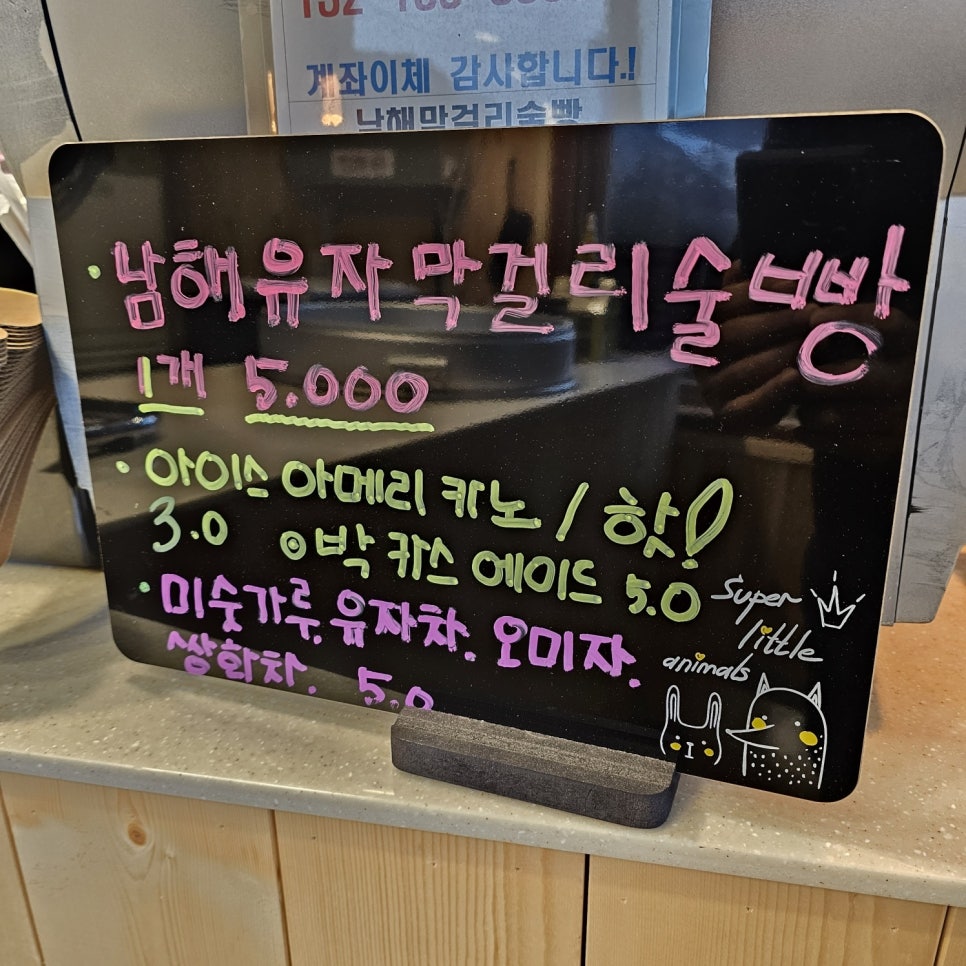 계좌이체 감사합니다.!
남해막걸리술빵
· 남해유자막걸리술빵
1개 5.000
· 아이스 아메리카노 / 핫!
3.0 ⊙ 박카스 에이드 5.0
· 미숫가루. 유자차. 오미자.
쌍화차. 5.0
Super
little
animals